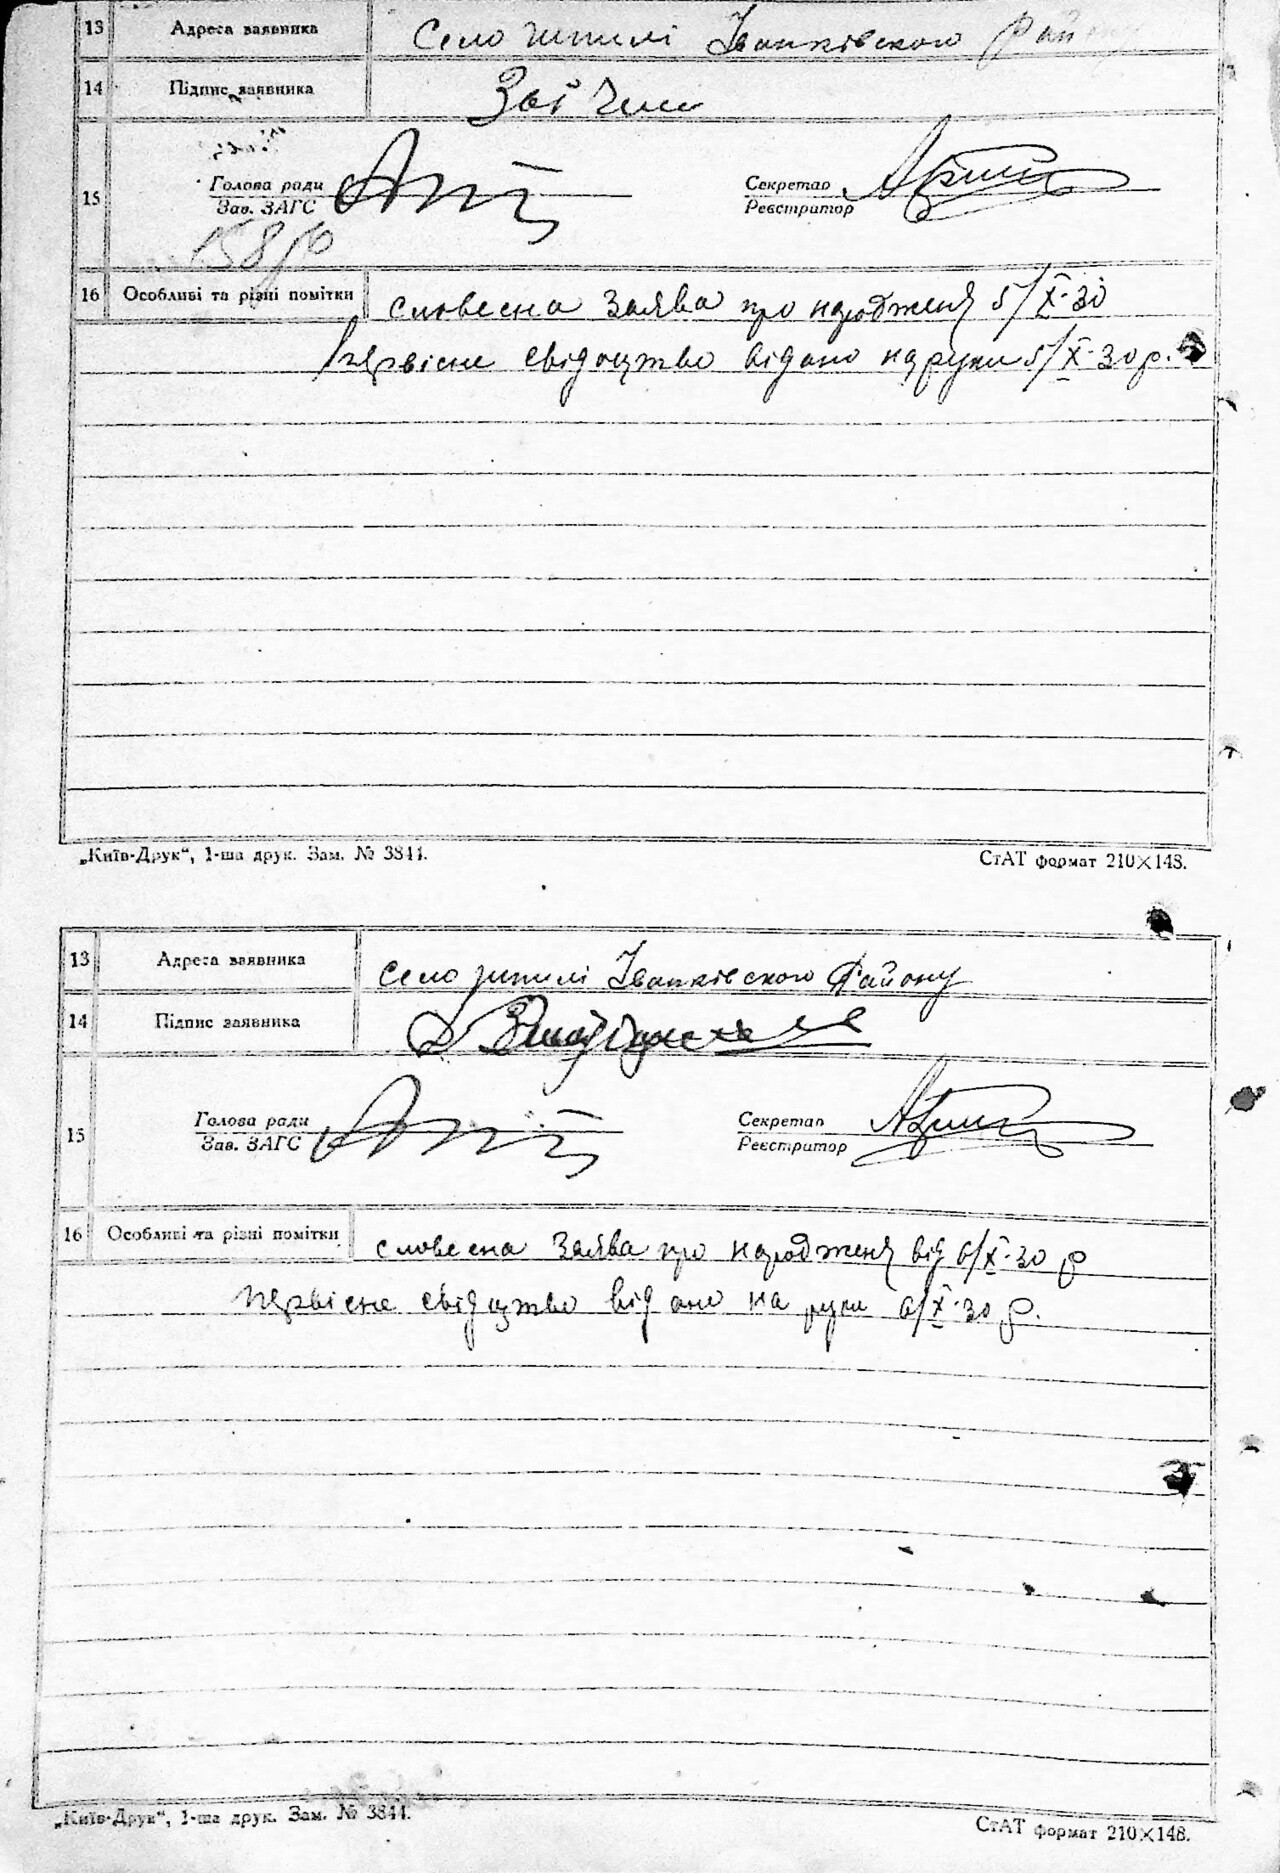 13 Адреса заявника Село шпилі Іванківского Району
14 Підпис заявника
15 Голова ради Секретар
Зав. ЗАГС Реєстратор
16 Особливі та різні помітки словесна заява про народженя 5/X-30
первісне свідоцтво видано на руки 5/X-30 р.
„Київ-Друк“, 1-ша друк. Зам. № 3844.
СтАТ формат 210×148.
13 Адреса заявника село шпилі Іванківского Району
14 Підпис заявника
15 Голова ради Секретар
Зав. ЗАГС Реєстратор
16 Особливі та різні помітки словесна заява про народженя від 6/X-30 р
первісне свідоцтво видано на руки 6/X-30 р.
„Київ-Друк“, 1-ша друк. Зам. № 3844.
СтАТ формат 210×148.